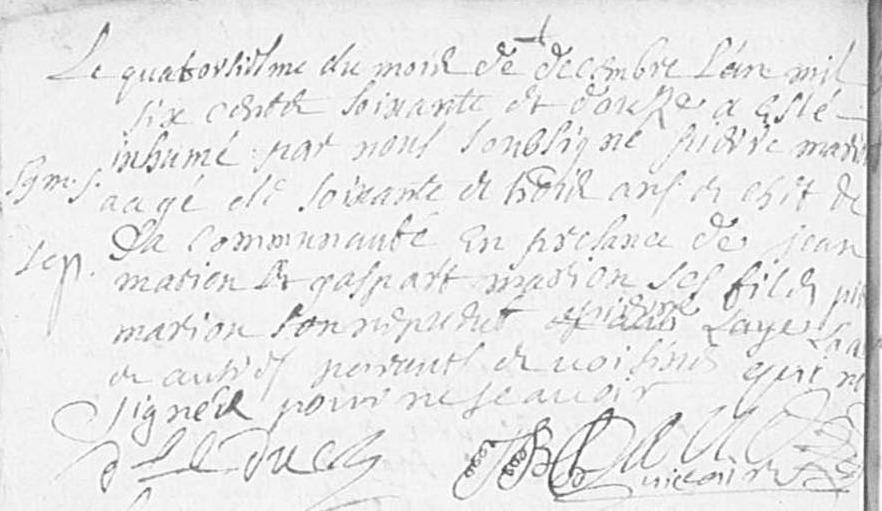 Le quatorsiesme du mois de decembre l'an mil
six cents soixante et douze a esté
inhumé par nous soubsigné pierre marion
aagé de soixante et trois ans et chef de
La communauté en presance de jean
marion et gaspart marion ses fils
marion son nepveut Laye
et autres parants et voisins qui ne
signés pour ne scavoir
Leduc
vicaire